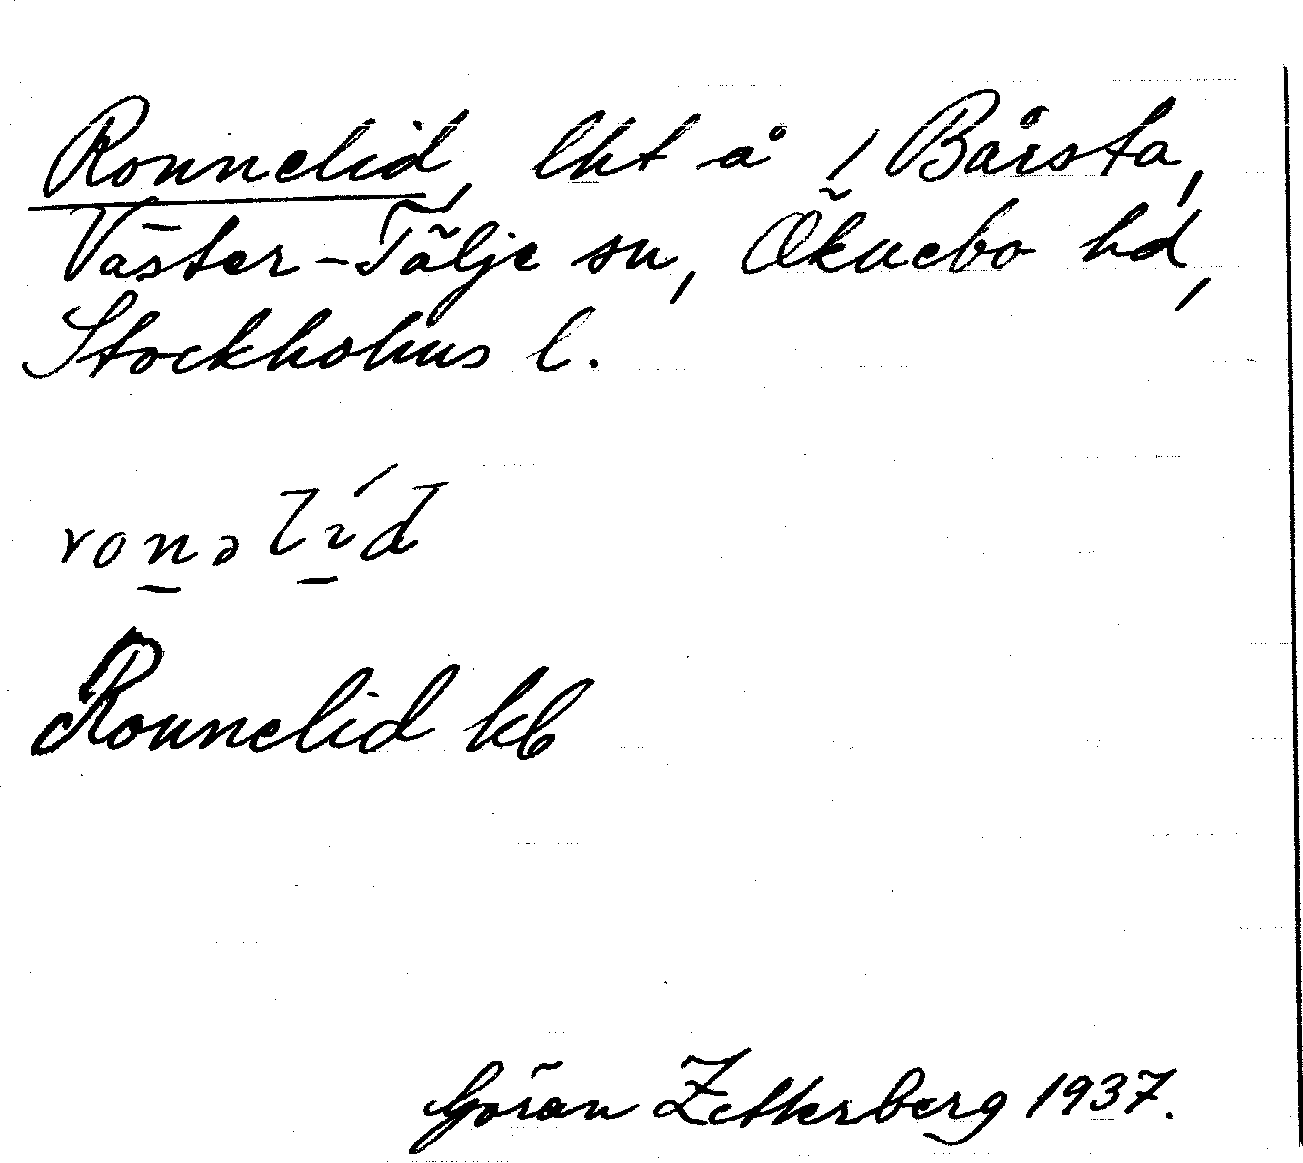 Ronnelid, lht å 1 Bårsta,
Väster-Tälje sn, Öknebo hd,
Stockholms l.
ronəlíd
Ronnelid kb
Göran Zetterberg 1937.